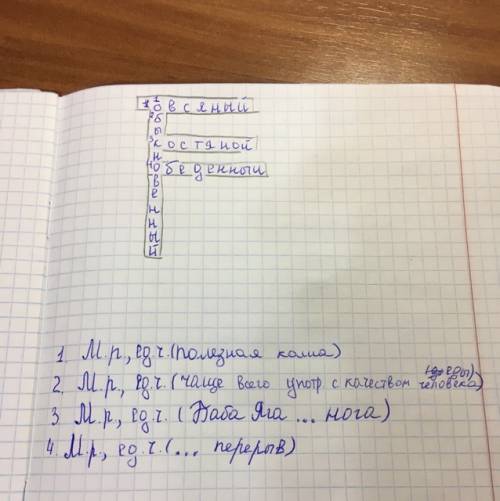 1 овсяный
2 б
ы
3 костяной
н
4 обеденный
в
е
н
н
ы
й
1. М.р., ед.ч. (полезная каша)
2. М.р., ед.ч. (чаще всего употр. с качеством человека)
3. М.р., ед.ч. (Баба Яга ... нога)
4. М.р., ед.ч. (... перерыв)